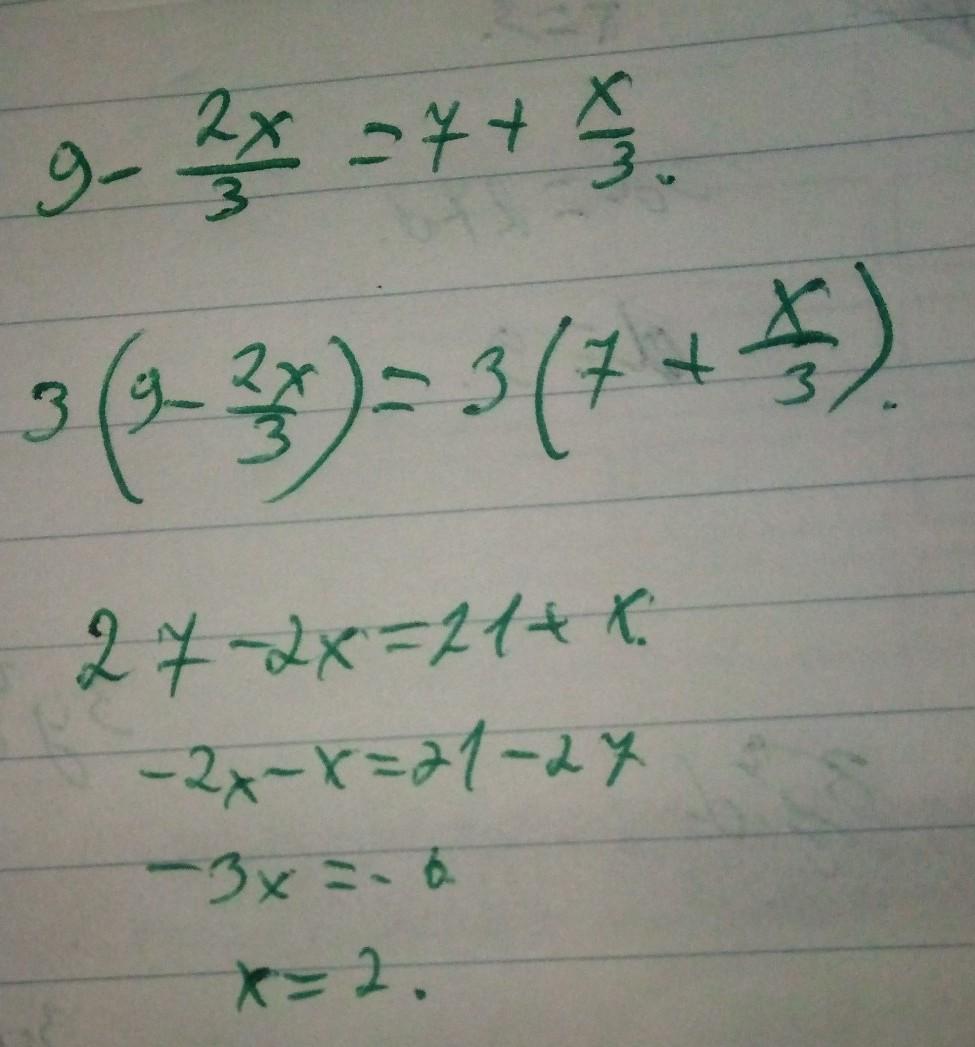 9 - 2x/3 = 7 + x/3.
3(9 - 2x/3) = 3(7 + x/3).
27 - 2x = 21 + x.
-2x - x = 21 - 27
-3x = -6
x = 2.